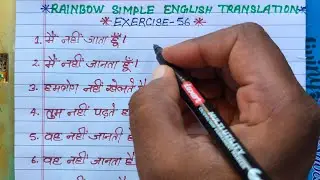 *RAINBOW SIMPLE ENGLISH TRANSLATION
*EXERCISE-56*
1. मैं नहीं आता हूँ।
2. मैं नहीं जानता हूँ।
3. हमलोग नहीं खेलते
4. तुम नहीं पढ़ते
5. वह नहीं जानती
6. वह नहीं जानता